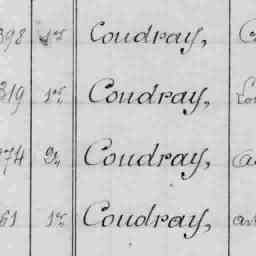 398 1re Coudray,
319 1re Coudray,
374 2e Coudray,
61 1re Coudray,